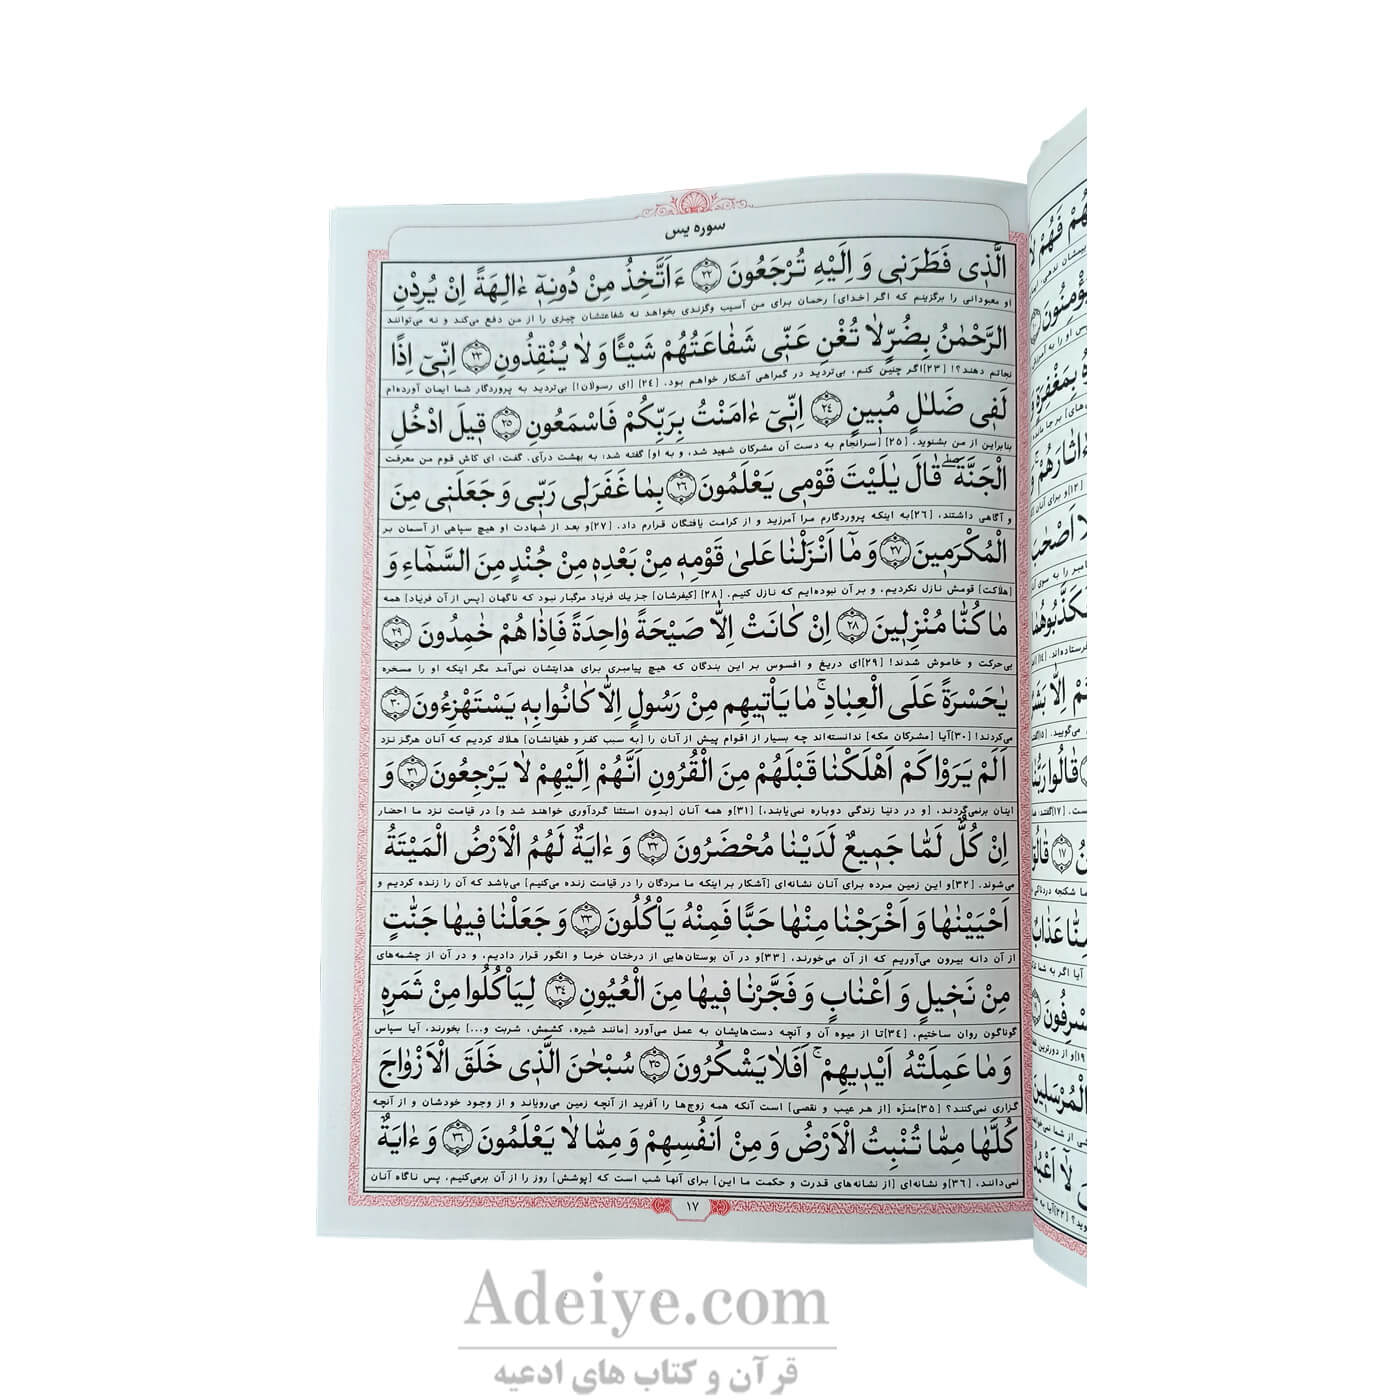 سوره یس
الَّذٖی فَطَرَنٖی وَ اِلَیْهِ تُرْجَعُونَ ﴿۲۲﴾ ءَاَتَّخِذُ مِنْ دُونِهٖٓ ءٰالِهَةً اِنْ یُرِدْنِ
او معبودانی را برگزینم که اگر [خدای] رحمان برای من آسیب وگزندی بخواهد نه شفاعتشان چیزی را از من دفع می‌کند و نه می‌توانند
الرَّحْمٰنُ بِضُرٍّ لٰا تُغْنِ عَنّٖی شَفٰاعَتُهُمْ شَیْـًٔا وَ لٰا یُنْقِذُونِ ﴿۲۳﴾ اِنّٖیٓ اِذًا
نجاتم دهند؟! [۲۳]اگر چنین کنم، بی‌تردید در گمراهی آشکار خواهم بود. [۲۴] [ای رسولان!] بی‌تردید به پروردگار شما ایمان آورده‌ام
لَفٖی ضَلٰالٍ مُبٖینٍ ﴿۲۴﴾ اِنّٖیٓ ءٰامَنْتُ بِرَبِّکُمْ فَاسْمَعُونِ ﴿۲۵﴾ قٖیلَ ادْخُلِ
بنابراین از من بشنوید. [۲۵] [سرانجام به دست آن مشرکان شهید شد، و به او] گفته شد: به بهشت درآی. گفت: ای کاش قوم من معرفت
الْجَنَّةَ ۖ قٰالَ یٰلَیْتَ قَوْمٖی یَعْلَمُونَ ﴿۲۶﴾ بِمٰا غَفَرَلٖی رَبّٖی وَ جَعَلَنٖی مِنَ
و آگاهی داشتند، [۲۶]به اینکه پروردگارم مرا آمرزید و از کرامت یافتگان قرارم داد. [۲۷]و بعد از شهادت او هیچ سپاهی از آسمان بر
الْمُکْرَمٖینَ ﴿۲۷﴾ وَ مٰٓا اَنْزَلْنٰا عَلیٰ قَوْمِهٖ مِنْ بَعْدِهٖ مِنْ جُنْدٍ مِنَ السَّمٰٓاءِ وَ
[هلاکت] قومش نازل نکردیم، و بر آن نبوده‌ایم که نازل کنیم. [۲۸] [کیفرشان] جز یك فریاد مرگبار نبود که ناگهان [پس از آن فریاد] همه
مٰا کُنّٰا مُنْزِلٖینَ ﴿۲۸﴾ اِنْ کٰانَتْ اِلّٰا صَیْحَةً وٰاحِدَةً فَاِذٰا هُمْ خٰمِدُونَ ﴿۲۹﴾
بی‌حرکت و خاموش شدند! [۲۹]ای دریغ و افسوس بر این بندگان که هیچ پیامبری برای هدایتشان نمی‌آمد مگر اینکه او را مسخره
یٰحَسْرَةً عَلَی الْعِبٰادِ ۚ مٰا یَأْتٖیهِم مِنْ رَسُولٍ اِلّٰا کٰانُوا بِهٖ یَسْتَهْزِءُونَ ﴿۳۰﴾
می‌کردند! [۳۰]آیا [مشرکان مکه] ندانسته‌اند چه بسیار از اقوام پیش از آنان را [به سبب کفر و طغیانشان] هلاك کردیم که آنان هرگز نزد
اَلَمْ یَرَوْا کَمْ اَهْلَکْنٰا قَبْلَهُمْ مِنَ الْقُرُونِ اَنَّهُمْ اِلَیْهِمْ لٰا یَرْجِعُونَ ﴿۳۱﴾ وَ
اینان برنمی‌گردند، [و در دنیا زندگی دوباره نمی‌یابند،] [۳۱]و همه آنان [بدون استثنا گردآوری خواهند شد و] در قیامت نزد ما احضار
اِنْ کُلٌّ لَمّٰا جَمٖیعٌ لَدَیْنٰا مُحْضَرُونَ ﴿۳۲﴾ وَ ءٰایَةٌ لَهُمُ الْاَرْضُ الْمَیْتَةُ
می‌شوند. [۳۲]و این زمین مرده برای آنان نشانه‌ای [آشکار بر اینکه ما مردگان را در قیامت زنده می‌کنیم] می‌باشد که آن را زنده کردیم و
اَحْیَیْنٰهٰا وَ اَخْرَجْنٰا مِنْهٰا حَبًّا فَمِنْهُ یَأْکُلُونَ ﴿۳۳﴾ وَ جَعَلْنٰا فٖیهٰا جَنّٰتٍ
از آن دانه بیرون می‌آوریم که از آن می‌خورند، [۳۳]و در آن بوستان‌هایی از درختان خرما و انگور قرار دادیم، و در آن از چشمه‌های
مِنْ نَخٖیلٍ وَ اَعْنٰابٍ وَ فَجَّرْنٰا فٖیهٰا مِنَ الْعُیُونِ ﴿۳۴﴾ لِیَأْکُلُوا مِنْ ثَمَرِهٖ
گوناگون روان ساختیم، [۳۴]تا از میوه آن و آنچه دست‌هایشان به عمل می‌آورد [مانند شیره، کشمش، شربت و...] بخورند، آیا سپاس
وَ مٰا عَمِلَتْهُ اَیْدٖیهِمْ ۚ اَفَلٰا یَشْکُرُونَ ﴿۳۵﴾ سُبْحٰنَ الَّذٖی خَلَقَ الْاَزْوٰاجَ
گزاری نمی‌کنند؟ [۳۵]منزّه [از هر عیب و نقصی] است آنکه همه زوج‌ها را آفرید از آنچه زمین می‌رویاند و از وجود خودشان و از آنچه
کُلَّهٰا مِمّٰا تُنْبِتُ الْاَرْضُ وَ مِنْ اَنْفُسِهِمْ وَ مِمّٰا لٰا یَعْلَمُونَ ﴿۳۶﴾ وَ ءٰایَةٌ
نمی‌دانند، [۳۶]و نشانه‌ای [از نشانه‌های قدرت و حکمت ما این] برای آنها شب است که [پوشش] روز را از آن برمی‌کنیم، پس ناگاه آنان
۱۷
Adeiye.com
قرآن و کتاب های ادعیه